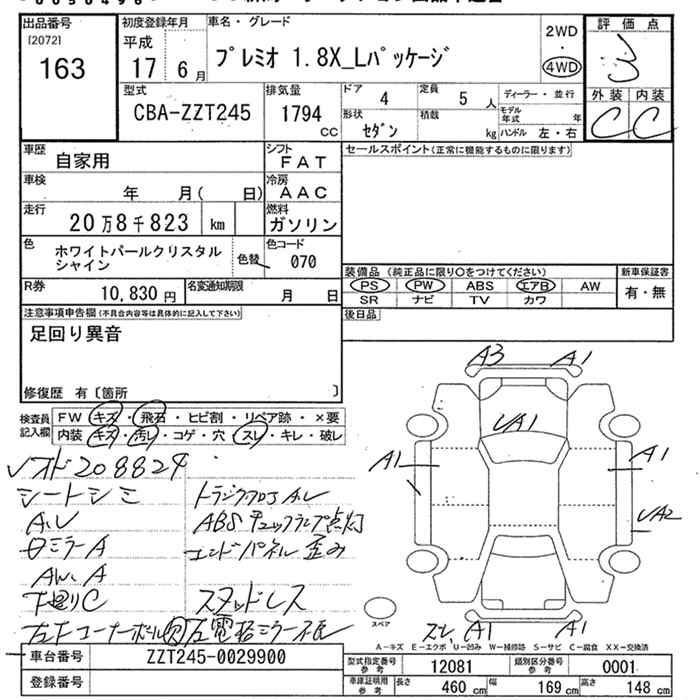 出品番号
[2072]
163
初度登録年月
平成
17 6 月
車名・グレード
プレミオ 1.8X_Lパッケージ
2WD
・
4WD
評価点
3
外装 内装
C C
型式
CBA-ZZT245
排気量
1794
CC
ドア 4
定員 5 人
ディーラー・並行
形状 セダン
積載 kg
モデル年式 年
ハンドル 左・右
車歴 自家用
シフト FAT
セールスポイント(正常に機能するものに限ります)
車検 年 月( 日)
冷房 AAC
走行 20万8千823 km
燃料 ガソリン
色 ホワイトパールクリスタル
シャイン
色替
色コード 070
R券 10,830 円
名変通知期限 月 日
装備品(純正品に限り○をつけてください)
PS PW ABS エアB AW
SR ナビ TV カワ
新車保証書
有・無
後日品
注意事項申告欄(不具合内容等は具体的に記入して下さい)
足回り異音
修復歴 有〔箇所 〕
検査員
記入欄
FW キズ・飛石・ヒビ割・リペア跡・×要
内装 キズ・汚レ・コゲ・穴・スレ・キレ・破レ
208824
シートシミ
A.レ
ABSチェックランプ点灯
エンドパネル歪み
AW.A
下廻りC
スタッドレス
A3 A1
A1
A1
A1
A2
スレ A1 A1
スペア
A-キズ E-エクボ U-凹み W-補修跡 S-サビ C-腐食 XX-交換済
車台番号 ZZT245-0029900
登録番号
型式指定番号
参考
12081
類別区分番号
参考
0001
車庫証明用
参考
長さ 460 cm 幅 169 cm 高さ 148 cm